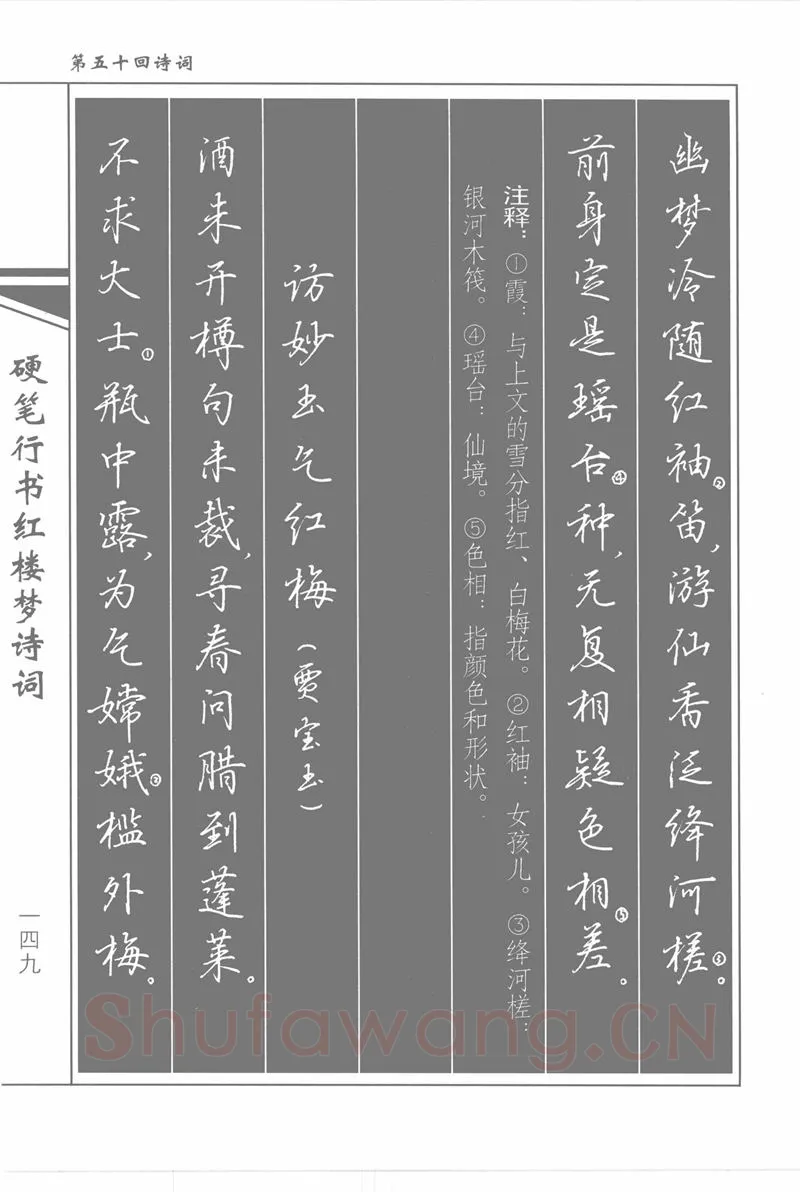 第五十回诗词
幽梦冷随红袖②笛，游仙香泛绛河槎③。
前身定是瑶台④种，无复相疑色相⑤差。
注释：①霞：与上文的雪分指红、白梅花。②红袖：女孩儿。③绛河槎：
银河木筏。④瑶台：仙境。⑤色相：指颜色和形状。
访妙玉乞红梅（贾宝玉）
酒未开樽句未裁，寻春问腊到蓬莱。
不求大士①瓶中露，为乞嫦娥②槛外梅。
硬笔行书红楼梦诗词
一四九
Shufawang.CN